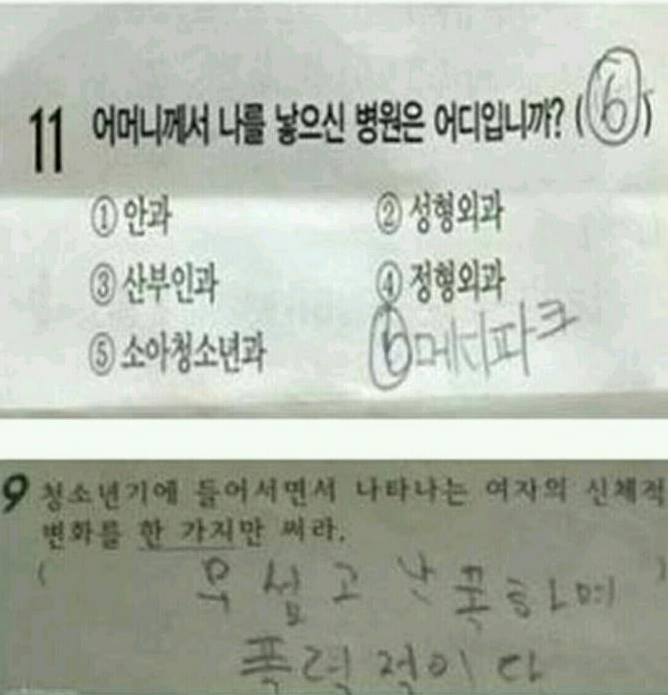 11 어머니께서 나를 낳으신 병원은 어디입니까? (⑥)
① 안과 ② 성형외과
③ 산부인과 ④ 정형외과
⑤ 소아청소년과 ⑥메디파크
9 청소년기에 들어서면서 나타나는 여자의 신체적
변화를 한 가지만 써라.
( 무섭고 난폭하며 )
폭력적이다